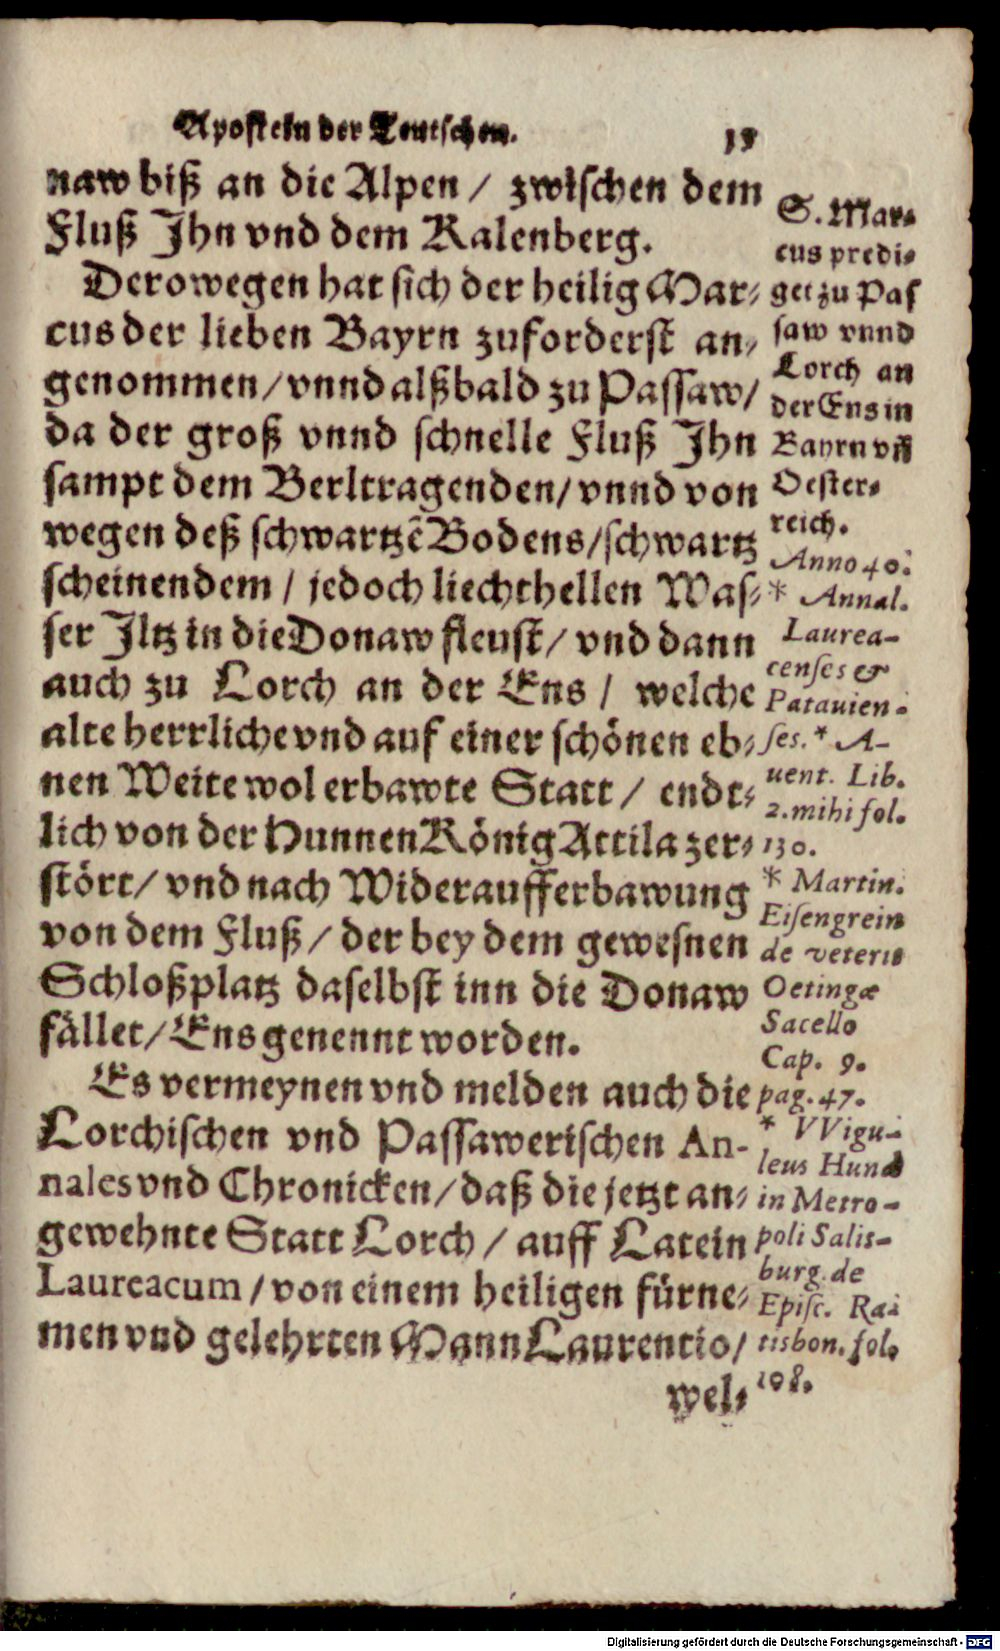 Aposteln der Teutschen.
naw biß an die Alpen / zwischen dem
Fluß Ihn vnd dem Kalenberg.
Derowegen hat sich der heilig Mar-
cus der lieben Bayrn zuforderst an-
genommen / vnnd alßbald zu Passaw /
da der groß vnnd schnelle Fluß Ihn
sampt dem Berltragenden / vnnd von
wegen deß schwartzē Bodens / schwartz
scheinendem / jedoch liechthellen Was-
ser Iltz in die Donaw fleust / vnd dann
auch zu Lorch an der Ens / welche
alte herrliche vnd auf einer schönen eb-
nen Weite wol erbawte Statt / endt-
lich von der Hunnen König Attila zer-
stört / vnd nach Wideraufferbawung
von dem Fluß / der bey dem gewesnen
Schloßplatz daselbst inn die Donaw
fället / Ens genennt worden.
Es vermeynen vnd melden auch die
Lorchischen vnd Passawerischen An-
nales vnd Chronicken / daß die jetzt an-
gewehnte Statt Lorch / auff Latein
Laureacum / von einem heiligen fürne-
men vnd gelehrten Mann Laurentio /
wel-
S. Mar-
cus predi-
get zu Pas
saw vnnd
Lorch an
der Ens in
Bayrn vn̄
Oester-
reich.
Anno 40.
* Annal.
Laurea-
censes &
Patauien-
ses. * A-
uent. Lib.
2. mihi fol.
130.
* Martin.
Eisengrein
de veteris
Oetingæ
Sacello
Cap. 9.
pag. 47.
* VVigu-
leus Hund
in Metro-
poli Salis-
burg. de
Episc. Ra-
tisbon. fol.
198.
Digitalisierung gefördert durch die Deutsche Forschungsgemeinschaft - DFG